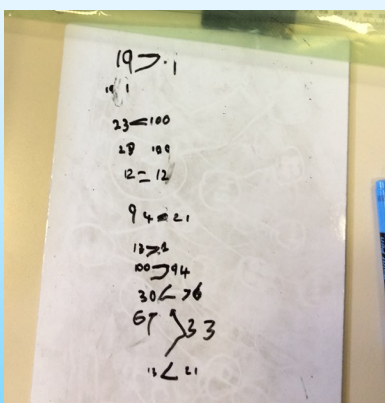 19 > 1
19 1
23 < 100
28 100
12 = 12
94 = 21
13 > 1
100 > 94
30 < 76
67 > 33
13 < 21